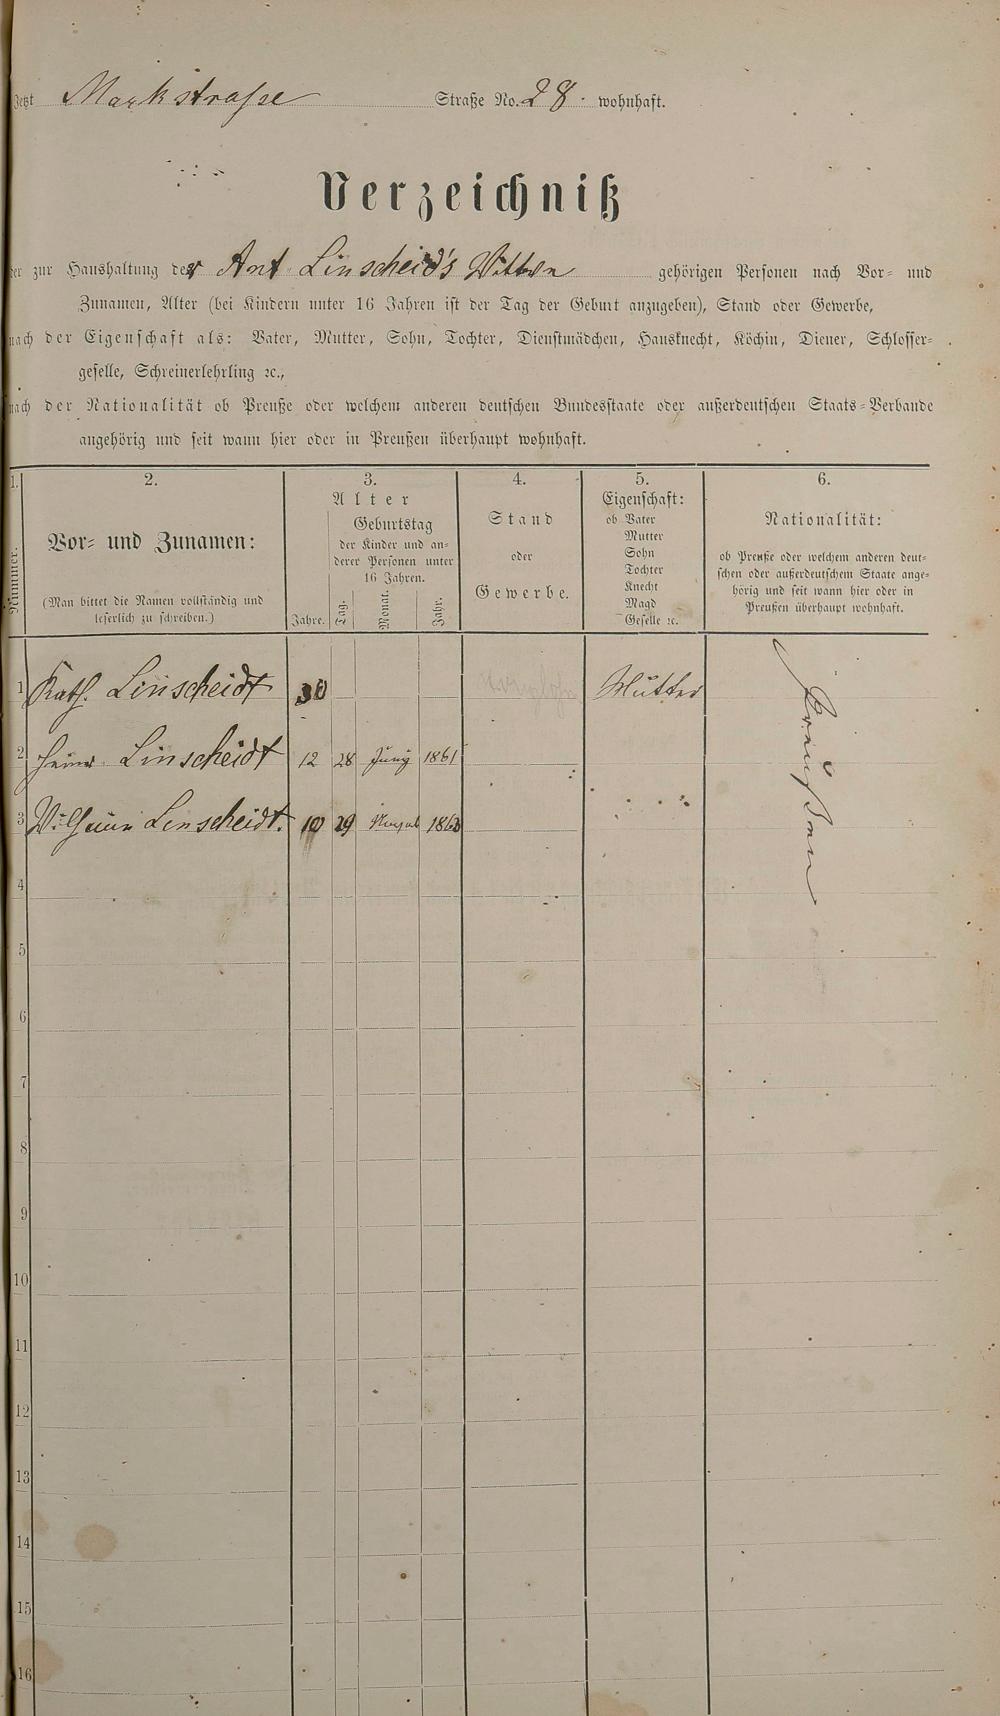 Jetzt Markstraße Straße No. 28. wohnhaft.
Verzeichniß
der zur Haushaltung der Ant Linscheid's Wittwe gehörigen Personen nach Vor- und
Zunamen, Alter (bei Kindern unter 16 Jahren ist der Tag der Geburt anzugeben), Stand oder Gewerbe,
nach der Eigenschaft als: Vater, Mutter, Sohn, Tochter, Dienstmädchen, Hausknecht, Köchin, Diener, Schlosser-
geselle, Schreinerlehrling ꝛc.,
nach der Nationalität ob Preuße oder welchem anderen deutschen Bundesstaate oder außerdeutschen Staats-Verbande
angehörig und seit wann hier oder in Preußen überhaupt wohnhaft.
1. 2. 3. 4. 5. 6.
Nummer.
Vor- und Zunamen:
(Man bittet die Namen vollständig und
leserlich zu schreiben.)
Alter
Geburtstag
der Kinder und an-
derer Personen unter
16 Jahren.
Jahre. Tag. Monat. Jahr.
Stand
oder
Gewerbe.
Eigenschaft:
ob Vater
Mutter
Sohn
Tochter
Knecht
Magd
Geselle ꝛc.
Nationalität:
ob Preuße oder welchem anderen deut-
schen oder außerdeutschem Staate ange-
hörig und seit wann hier oder in
Preußen überhaupt wohnhaft.
1 Kath. Linscheidt 30 Mutter Preußen
2 Heinr Linscheidt 12 28 Juny 1861
3 Wilhelm Linscheidt. 10 29 1863
4
5
6
7
8
9
10
11
12
13
14
15
16